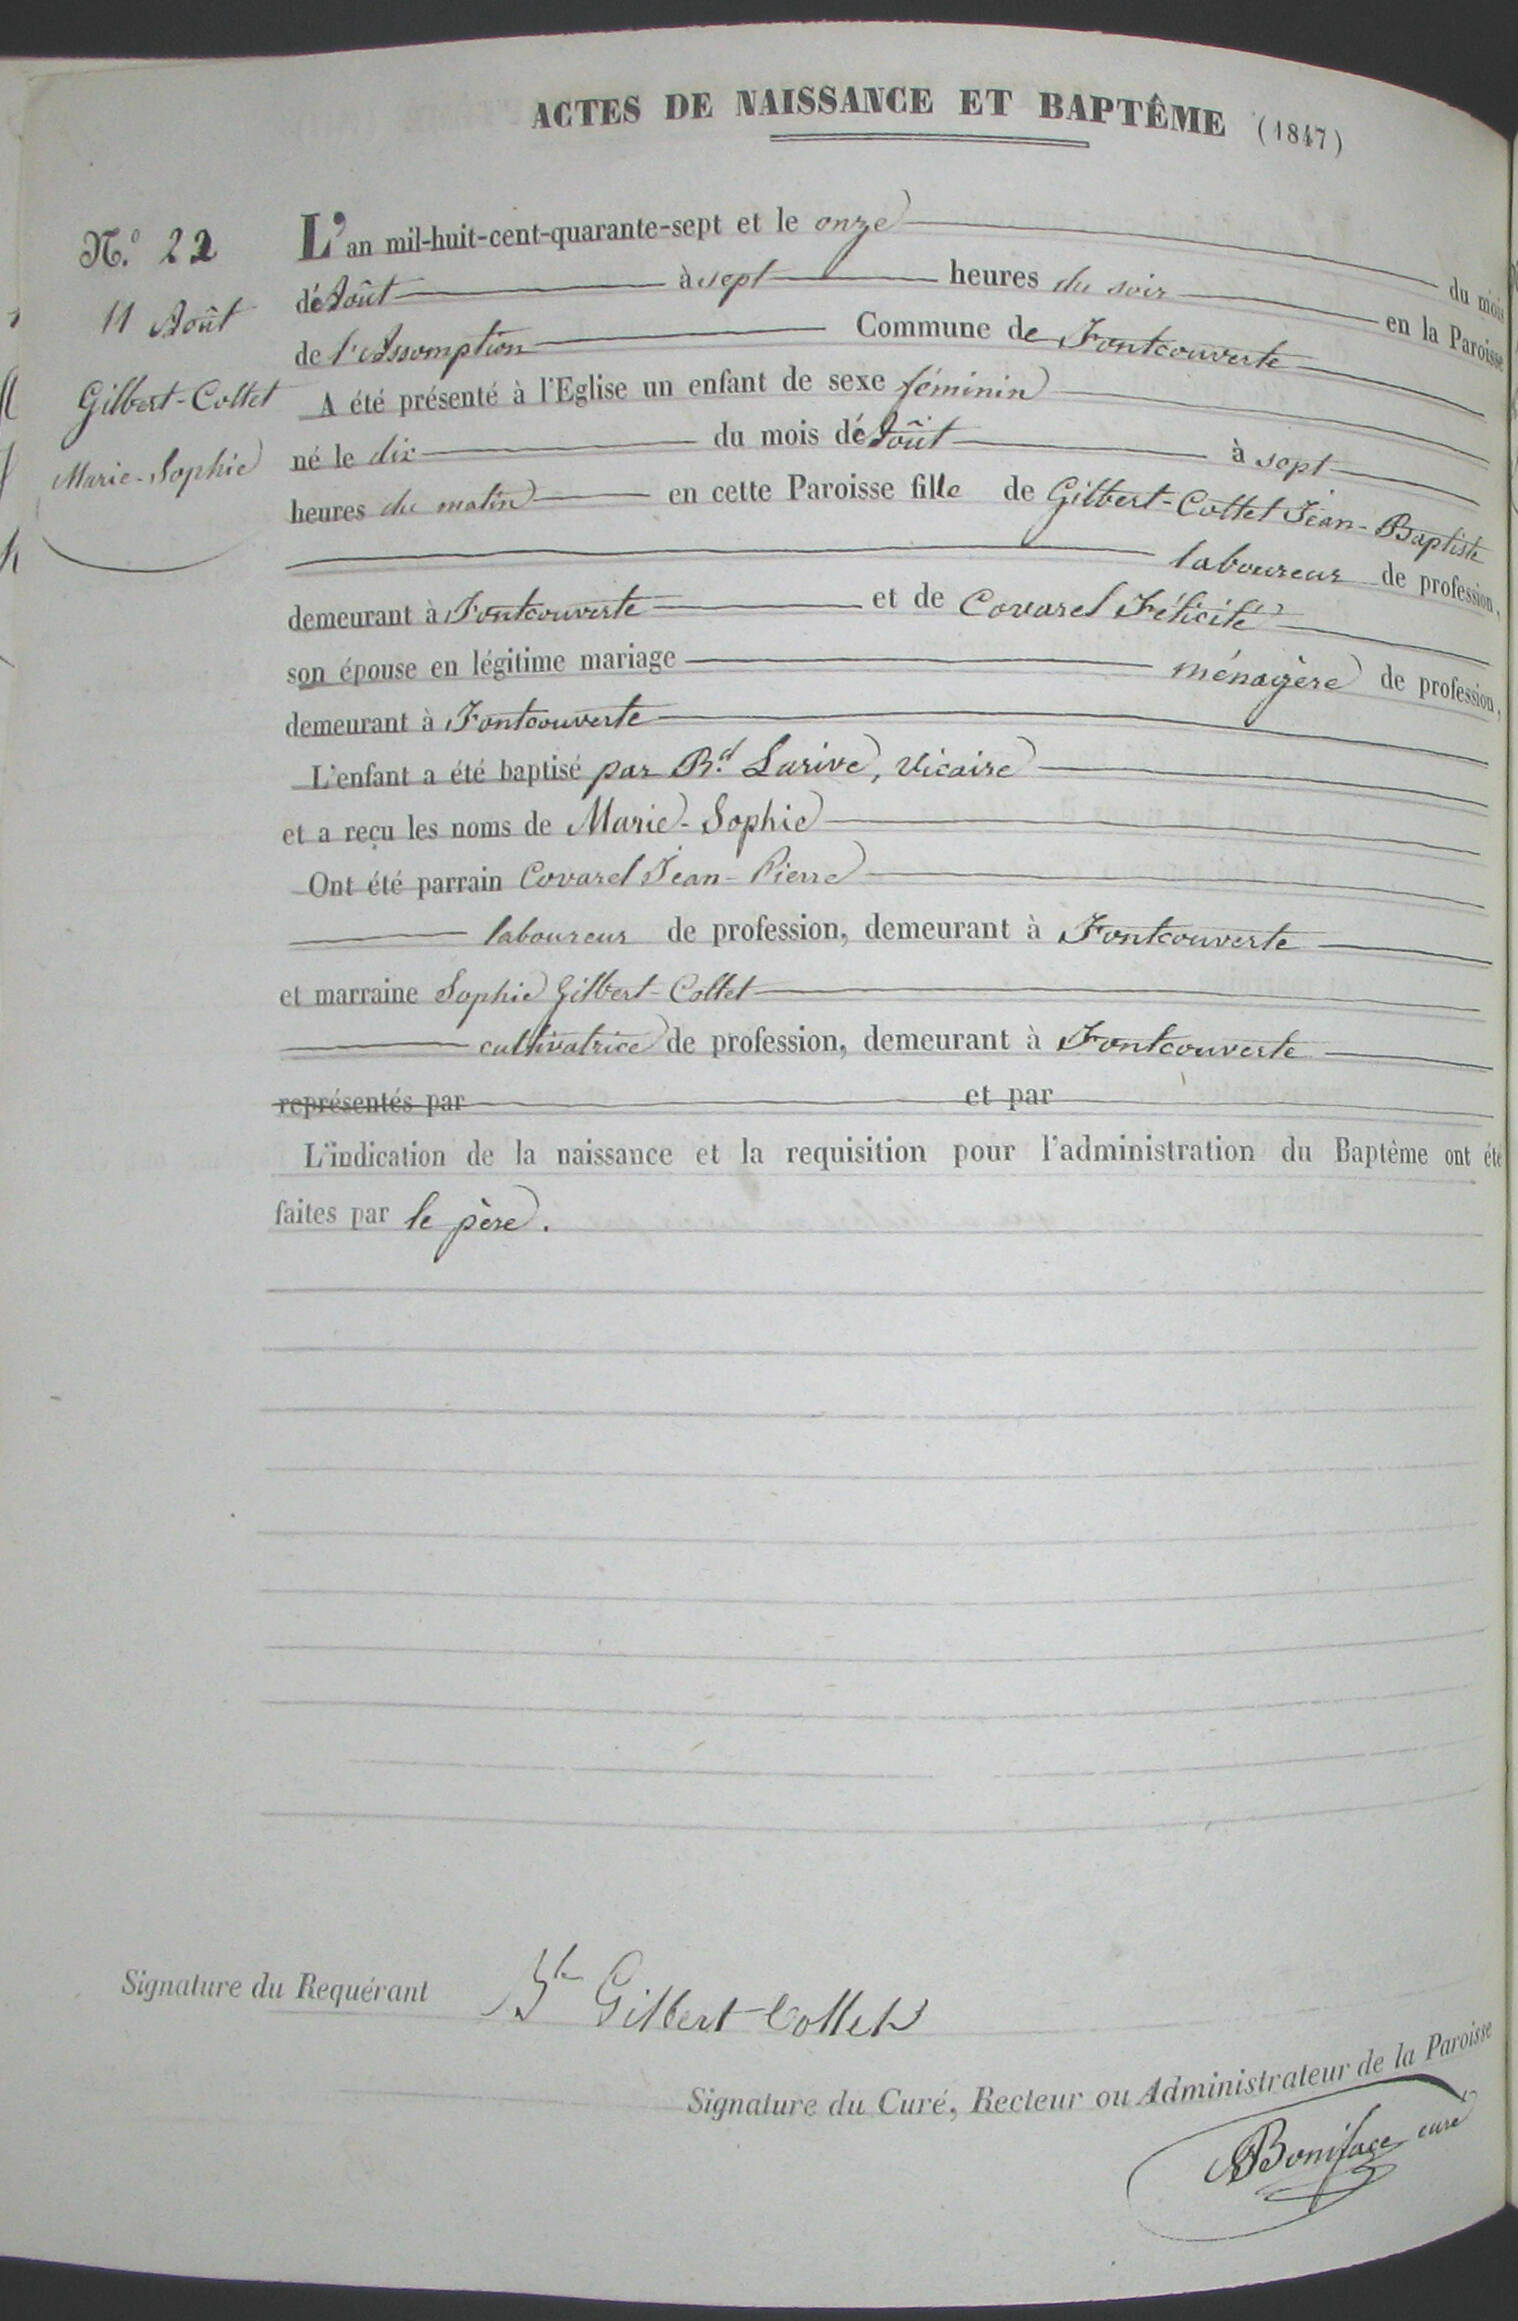 ACTES DE NAISSANCE ET BAPTÊME (1847)
N.° 22
11 Août
Gilbert-Collet
Marie-Sophie
L'an mil-huit-cent-quarante-sept et le onze du mois
d'Août à sept heures du soir en la Paroisse
de l'Assomption Commune de Fontcouverte
A été présenté à l'Eglise un enfant de sexe féminin
né le dix du mois d'Août à sept
heures du matin en cette Paroisse fille de Gilbert-Collet Jean-Baptiste
laboureur de profession,
demeurant à Fontcouverte et de Covarel Félicité
son épouse en légitime mariage ménagère de profession,
demeurant à Fontcouverte
L'enfant a été baptisé par R.d Larive, Vicaire
et a reçu les noms de Marie-Sophie
Ont été parrain Covarel Jean-Pierre
laboureur de profession, demeurant à Fontcouverte
et marraine Sophie Gilbert-Collet
cultivatrice de profession, demeurant à Fontcouverte
représentés par et par
L'indication de la naissance et la requisition pour l'administration du Baptème ont été
faites par le père.
Signature du Requérant Gilbert Collet
Signature du Curé, Recteur ou Administrateur de la Paroisse
Boniface curé